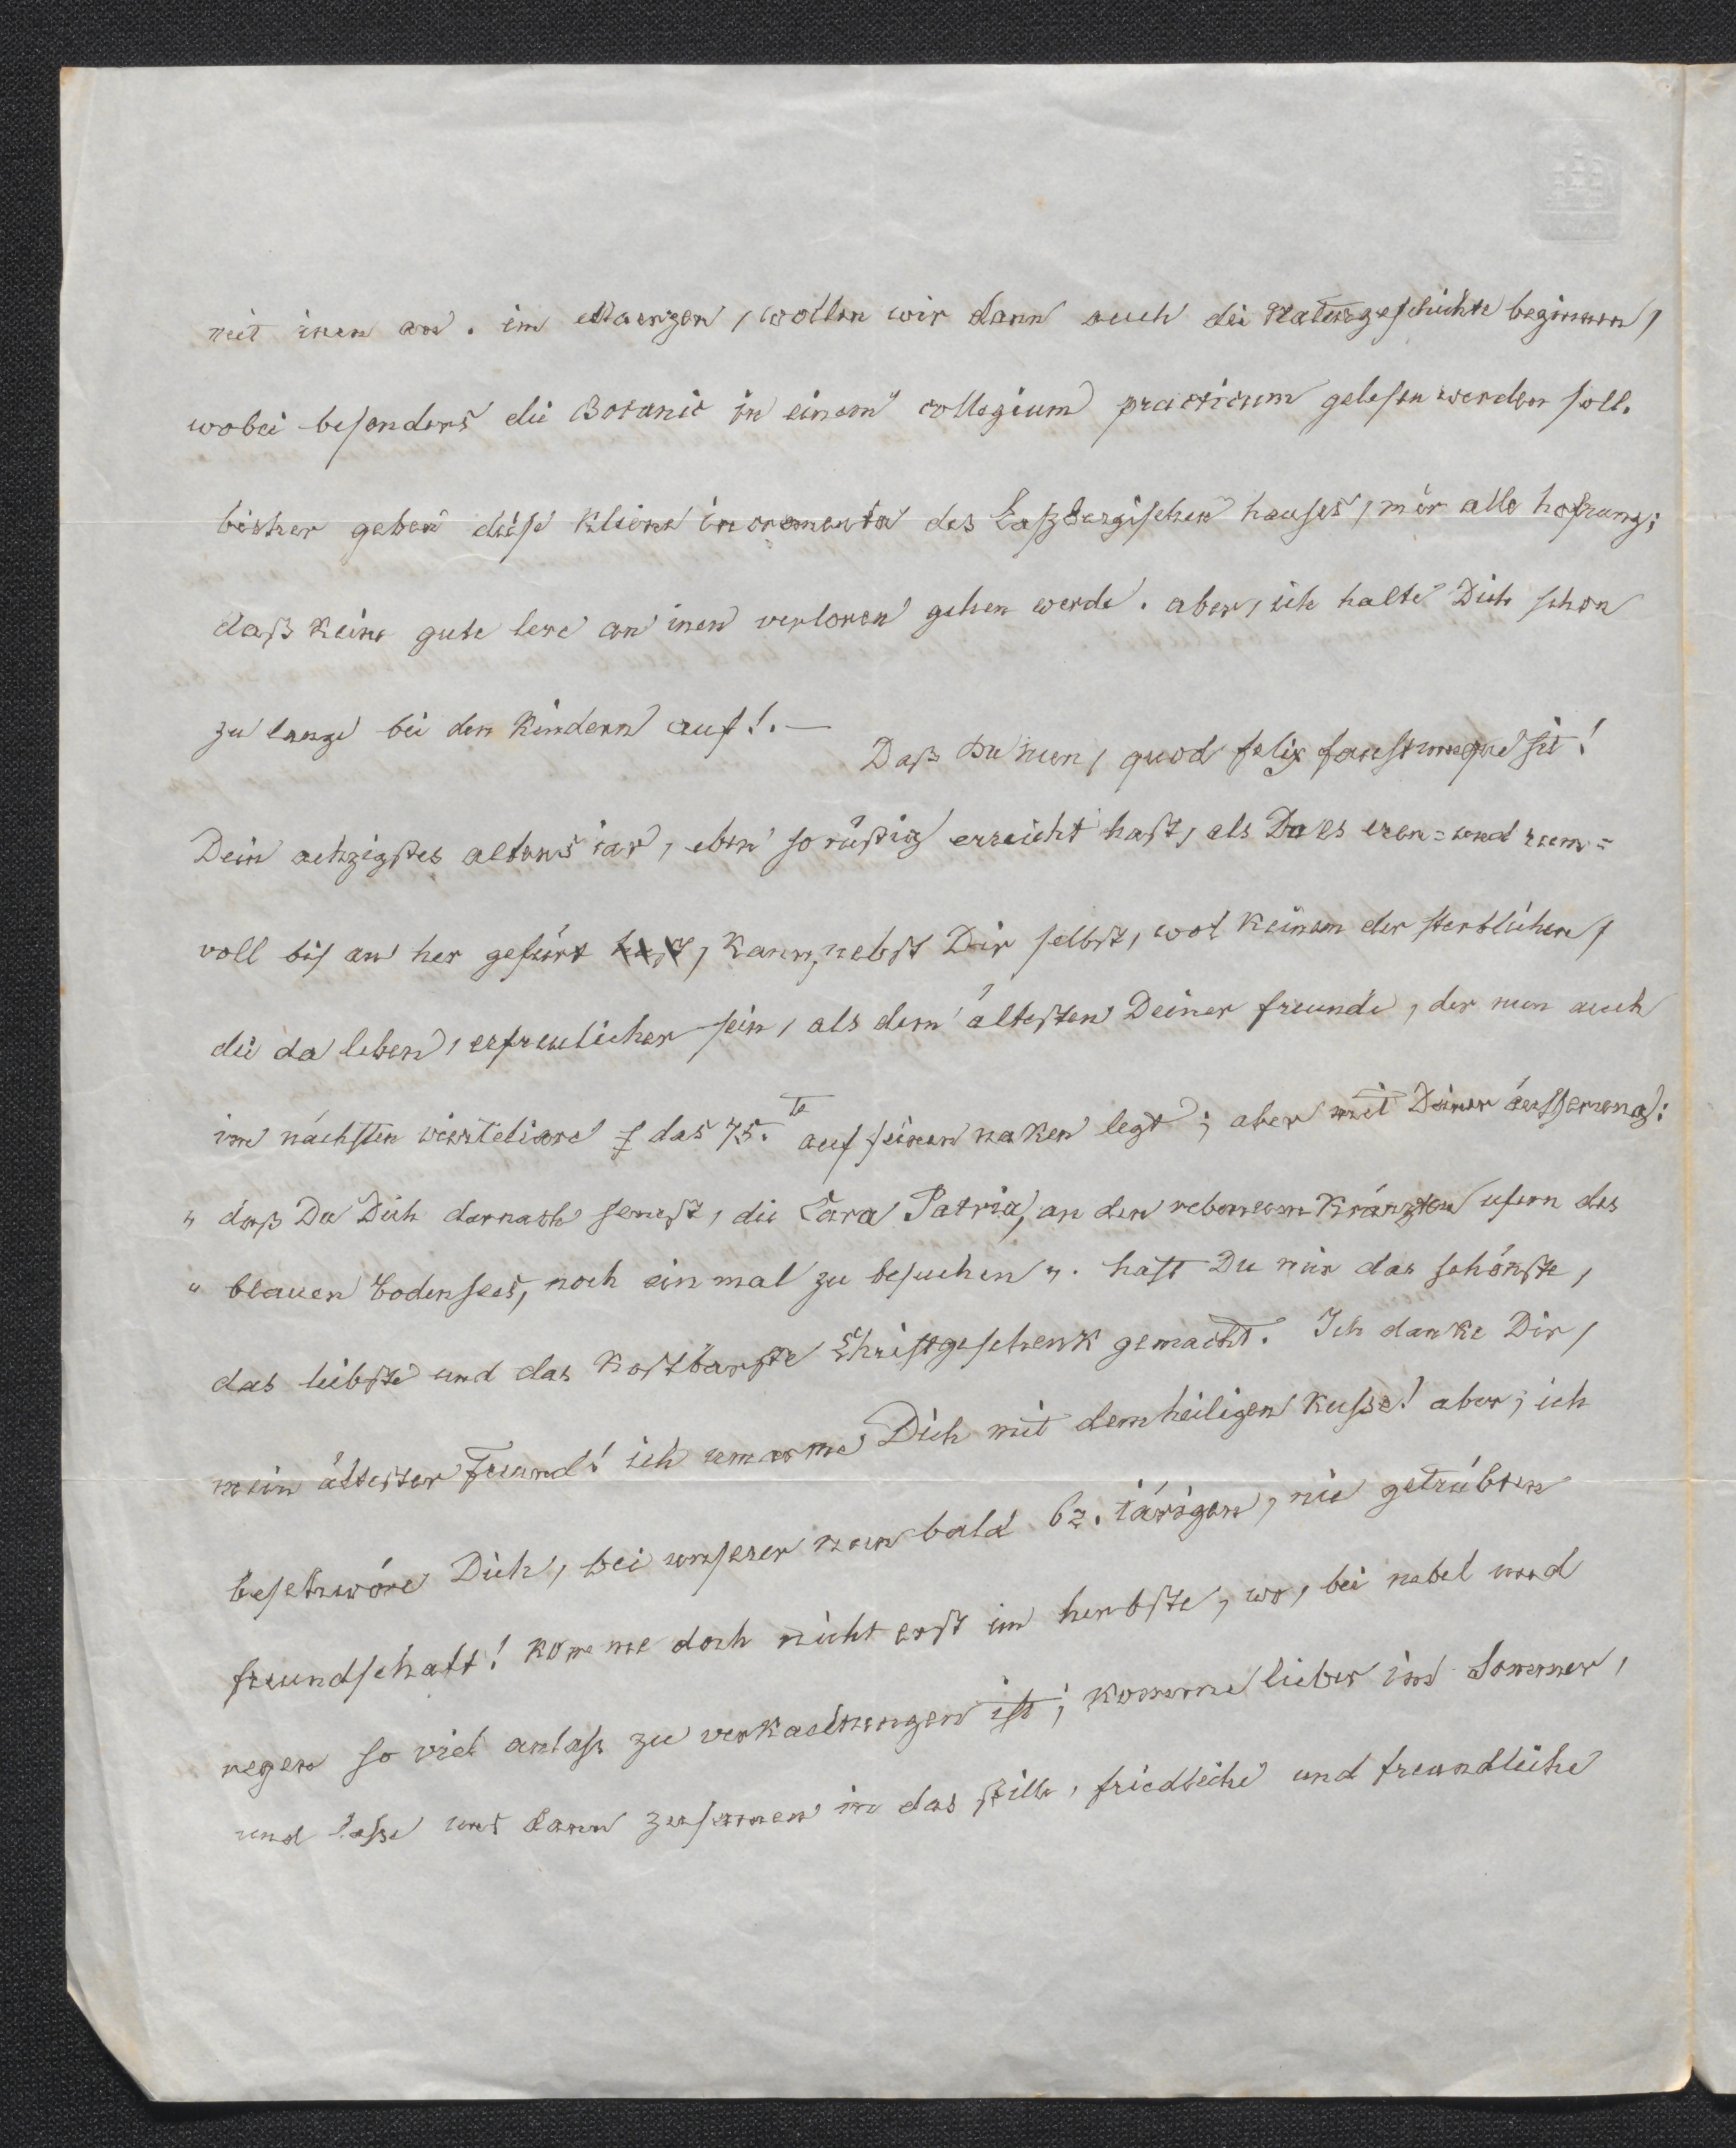 mit inen an. im Maerzen, wollen wir dann auch die Naturgeschichte beginnen,
wobei besonders die Botanic in einem collegium practicum gelesen werden soll.
bisher geben dise kleine incrementa des Laßbergischen hauses, mir alle hofnung;
daß keine gute lere an inen verloren gehen werde. aber, ich halte Dich schon
zu lange bei den Kindern auf!. —
Daß Du nun, quod felix faustumque sit!
Dein achzigstes alters iar, eben so rüstig erreicht hast, als Du es eren= und rum=
voll bis an her gefürt hast, kann, nebst Dir selbst, wol keinem der sterblichen,
die da leben, erfreulicher sein, als dem ältesten Deiner freunde, der nun auch
im nächsten vierteliare das 75.te auf seinen naken legt; aber mit Deiner äusserung:
„ daß Du Dich darnach senest, die Cara Patria, an den rebenumkränzten ufern des
„ blauen Bodensees, noch einmal zu besuchen„. hast Du mir das schönste,
das liebste und das kostbarste Christgeschenk gemacht. Ich danke Dir,
mein ältester Freund! ich umarme Dich mit dem heiligen kusse! aber, ich
beschwöre Dich, bei unserer nun bald 62. iärigen, nie getrübten
freundschaft! komme doch nicht erst im herbste, wo, bei nebel und
regen so viel anlaß zu verkaeltungen ist; komme lieber im Sommer,
und lasse uns dann zusamen in das stille, friedliche und freundliche